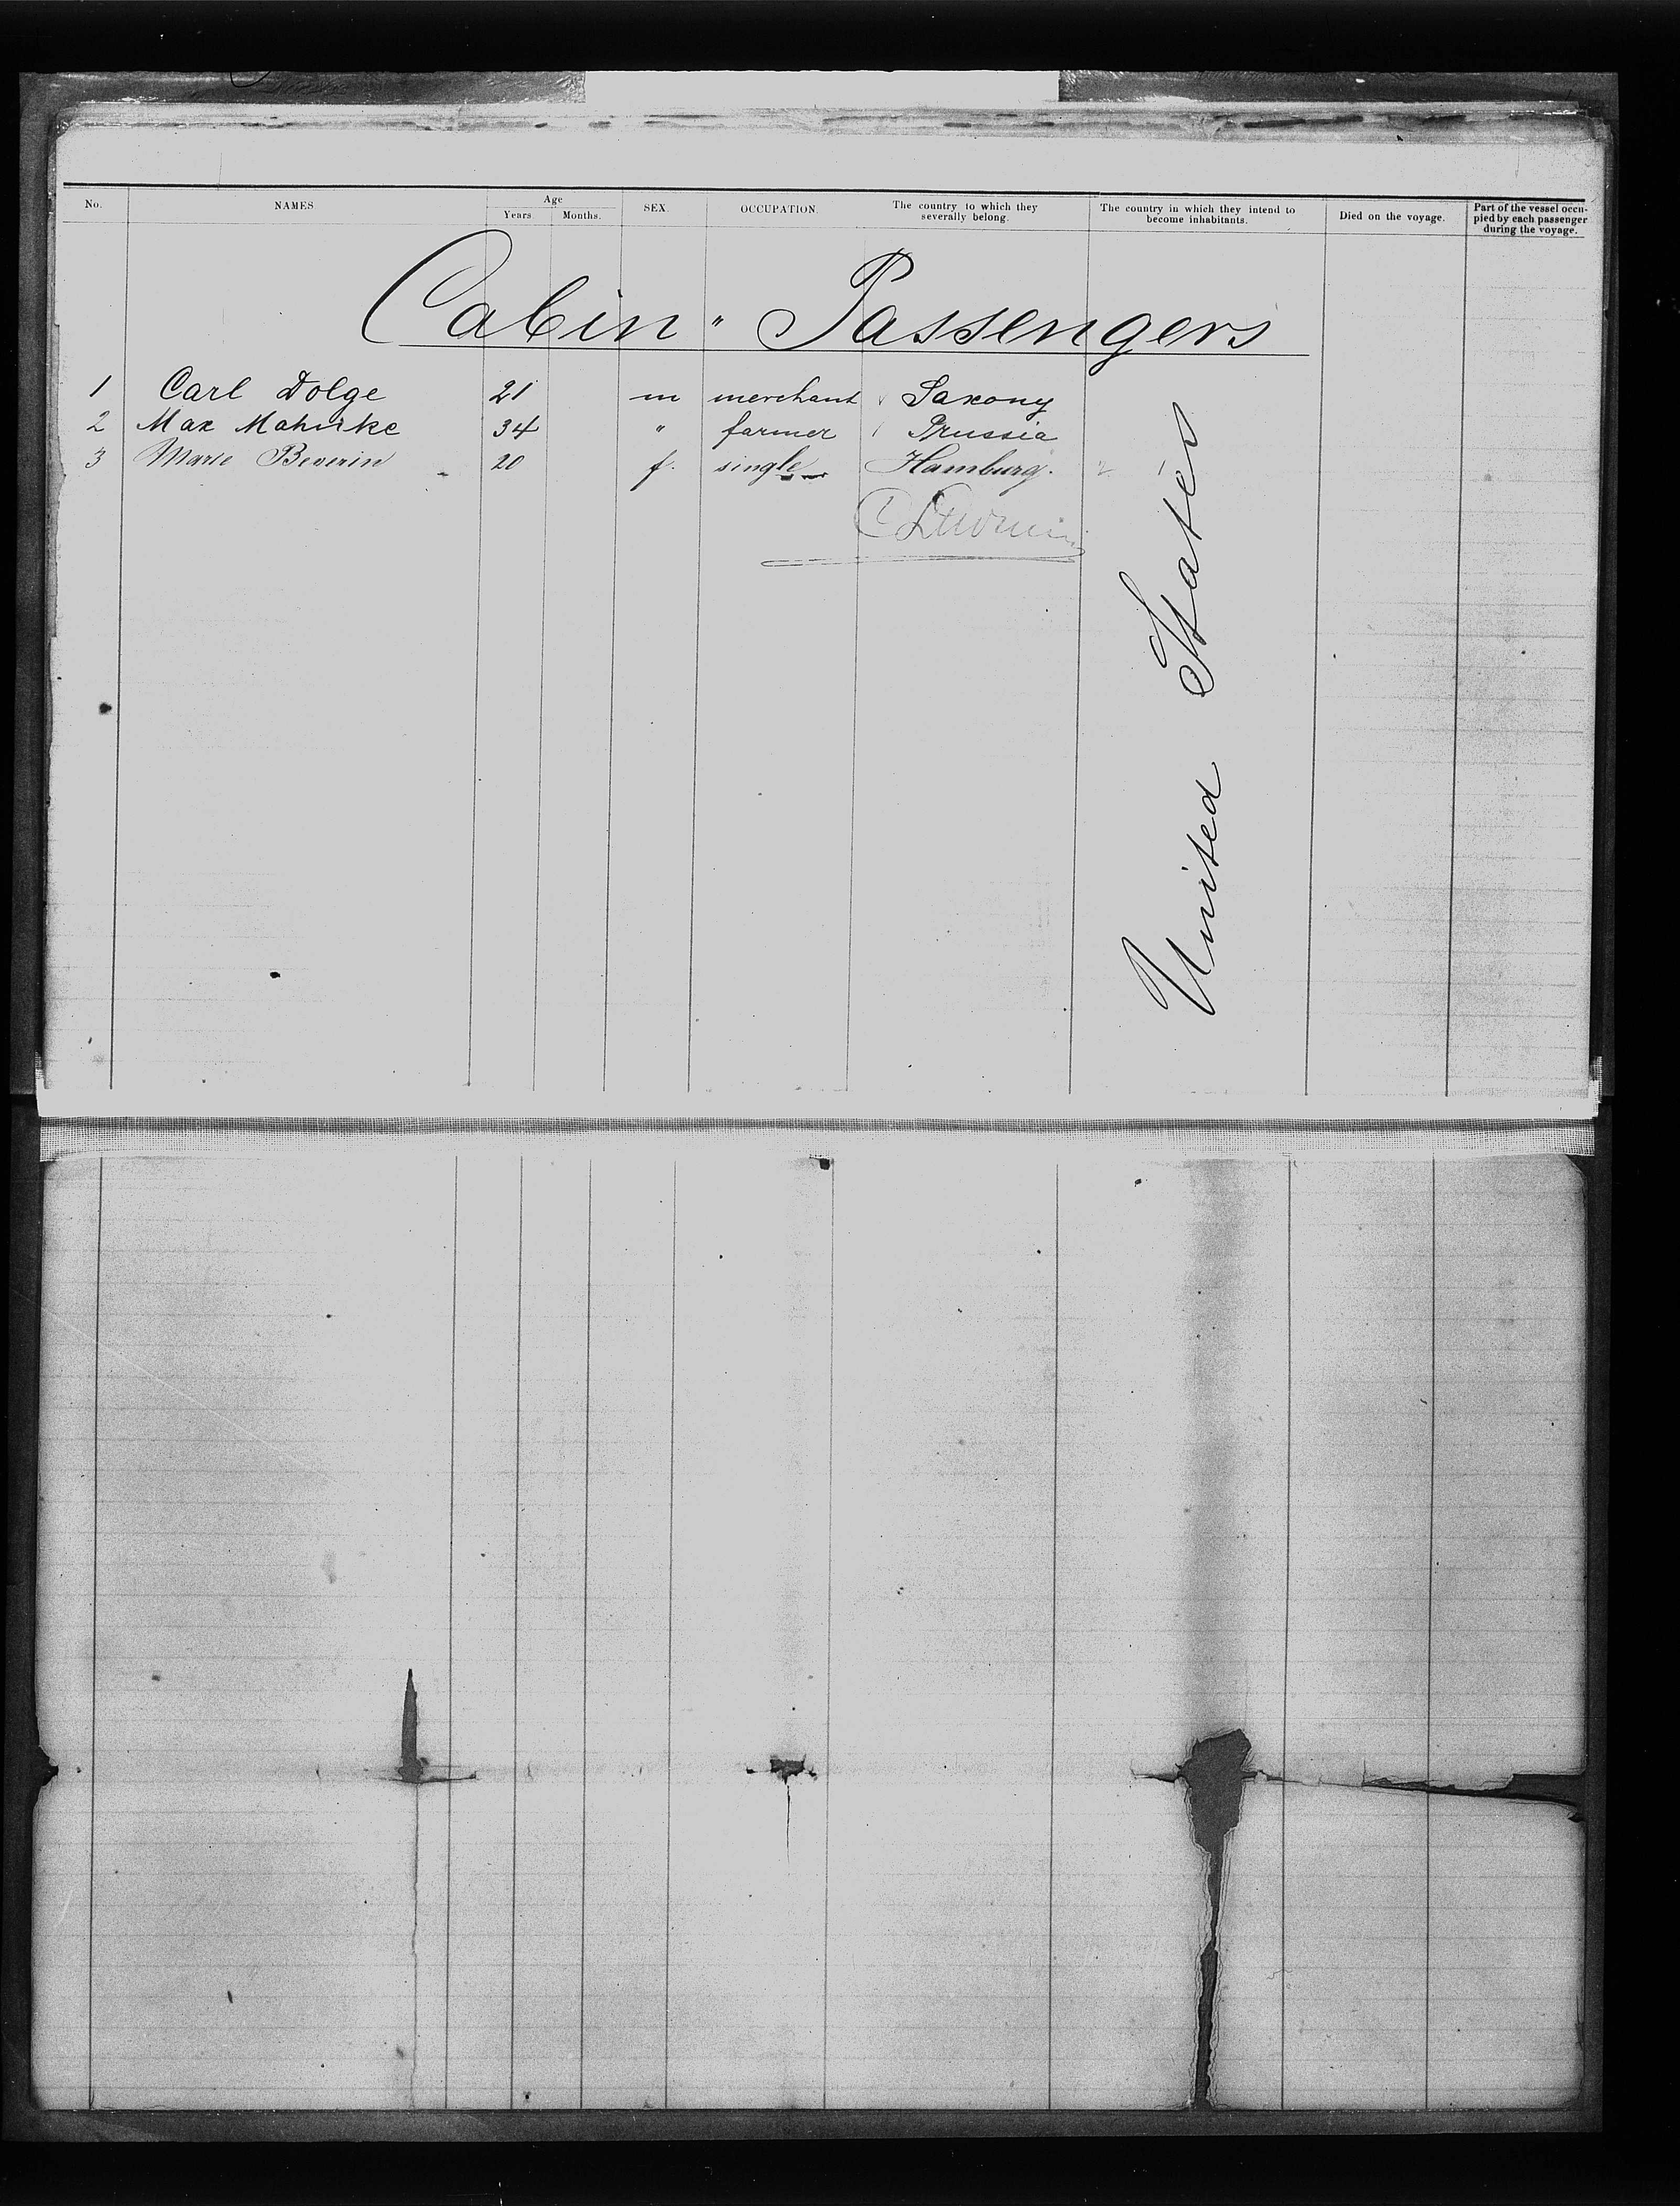 No. NAMES. Age Years. Months. SEX. OCCUPATION. The country to which they severally belong. The country in which they intend to become inhabitants. Died on the voyage. Part of the vessel occupied by each passenger during the voyage.
Cabin " Passengers
1 Carl Dolge 21 m merchant Saxony
2 Max Mahnke 34 " farmer Prussia
3 Marie Beverin 20 f. single Hamburg.
United States